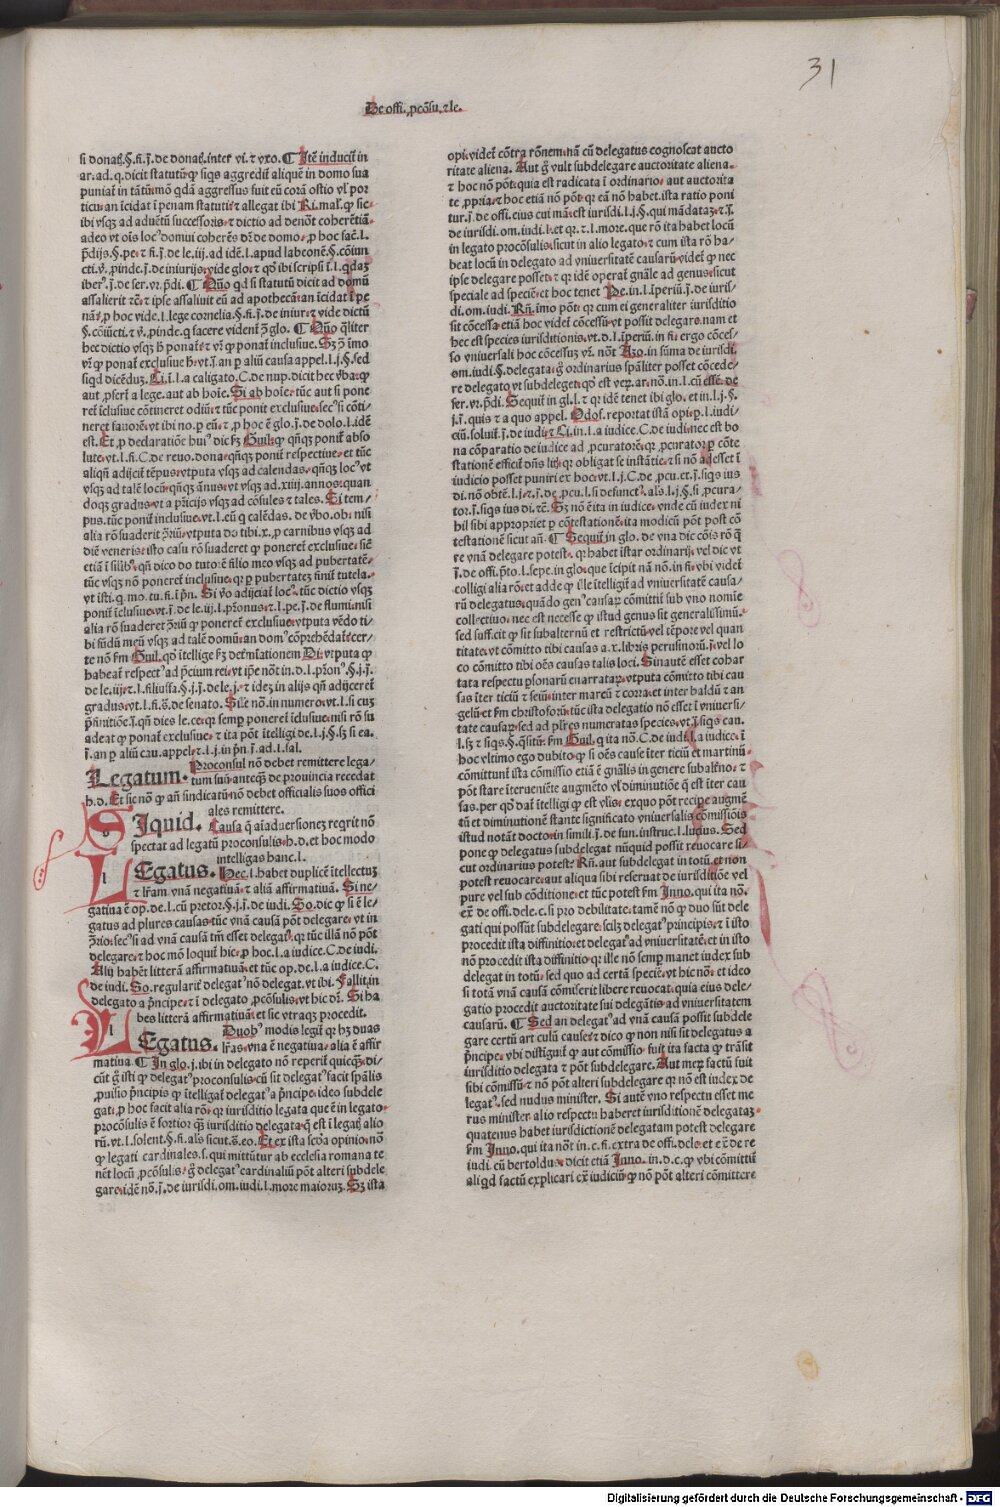 31
De offi. ꝓcōsu. ⁊ le.
si donaṫ. §. fi. j̄. de donaṫ. inter vi. ⁊ vxo. ¶ Itē inducit in
ar. ad. q. dicit statutū ꝙ siqs aggredit̄ aliquē in domo sua
puniat̄ in tātū mō qdā aggressus fuit eū corā ostio vl̓ por
ticu an īcidat ī penam statuti ⁊ allegat ibi Ri. mal. ꝙ sic
ibi vsqꝫ ad aduētū successoris ⁊ dictio ad denōt coherētiā
adeo vt oīs locꝰ domui coherēs dr̄ de domo ꝓ hoc fac̄. l.
p̄dijs. §. pe. ⁊ fi. j̄. de le. iij. ad idē. l. apud labeonē. §. cōiun
cti. ꝟ. ꝓinde. j̄. de iniurijs vide glo. ⁊ qð ibi scripsi ī. l. qdaꝫ
iberꝰ. j̄. de ser. vr. p̄di. ¶ Quō qd si statutū dicit ad domū
assalierit rē ⁊ ipse assaliuit eū ad apothecā an īcidat ī pe
nā ꝓ hoc vide. l. lege cornelia. §. fi. j̄. de iniur. ⁊ vide dictū
§. cōiūcti. ⁊ ꝟ. ꝓinde. q facere vident̄ ꝯ glo. ¶ Quō qliter
hec dictio vsqꝫ h̄ ponat̄ ⁊ vr̄ ꝙ ponat̄ inclusiue. Sꝫ ꝯ imo
vr̄ ꝙ ponat̄ exclusiue h̄ vt. j̄. an ꝑ aliū causa appel. l. j. §. sed
siqd dicēduꝫ. Ci. ī. l. a caligato. C. de nup. dicit hec ꝟba ꝙ
aut ꝓfert̄ a lege. aut ab hoīe. Si ab hoīe tūc aut si pone
ret̄ īclusiue cōtineret odiū ⁊ tūc ponit̄ exclusiue secꝰ si cōti
neret fauorē vt ibi no. ꝑ eū ⁊ ꝓ hoc ē glo. j̄. de dolo. l. idē
est. Et ꝓ declaratiōe huiꝰ dic fꝫ Guil. ꝙ qñqꝫ ponit̄ abso
lute vt. l. fi. C. de reuo. dona. qñqꝫ ponit̄ respectiue ⁊ tūc
aliqñ adijcit̄ tēpus vtputa vsqꝫ ad calendas qñqꝫ locꝰ vt
vsqꝫ ad talē locū qñqꝫ ānus vt vsqꝫ ad. xiiij. annos quan
doqꝫ gradus vt a pr̄icijs vsqꝫ ad cōsules ⁊ tales. Si tem
pus tūc ponit̄ inclusiue vt. l. cū q calēdas. de ꝟbo. ob. nisi
alia rō suaderit ꝯriū vtputa do tibi. x. ꝓ carnibus vsqꝫ ad
diē veneris isto casu rō suaderet ꝙ poneret̄ exclusiue. sic̄
etiā ī silibꝰ qñ dico do tutorē filio meo vsqꝫ ad pubertatē
tūc vsqꝫ nō poneret̄ inclusiue qꝛ ꝑ pubertateꝫ finit̄ tutela
vt īsti. q. mo. tu. fi. ī pn̄. Si ꝟo adijciat̄ locꝰ tūc dictio vsqꝫ
ponit̄ īclusiue vt. j̄. de le. iij. l. pr̄onus. ⁊. l. pe. j̄. de flumi. nisi
alia rō suaderet ꝯriū ꝙ poneret̄ exclusiue vtputa vēdo ti
bi fūdū meū vsqꝫ ad talē domū an domꝰ cōprehēdat̄ cer
te nō fm Guil. qð ītellige fꝫ determīationem Di. vtputa ꝙ
habeat̄ respectꝰ ad p̄cium rei vt ipse nōt in. d. l. pr̄onꝰ. §. j. j̄.
de le. iij. ⁊. l. filiusfa. §. j. j̄. de le. j. ⁊ ideꝫ in alijs qñ adijceret̄
gradus vt. l. fi. s̄. de senato. Sile nō. in numero vt. l. si cuꝫ
p̄finitiōe. j̄. qñ dies le. ce. qꝛ semꝑ poneret̄ īclusiue nisi rō su
adeat ꝙ ponat̄ exclusiue ⁊ ita pōt ītelligi de. l. j. §. fꝫ si ea.
j̄. an ꝑ aliū cau. appel. ⁊. l. j. in pn̄. j̄. ad. l. fal.
Proconsul nō debet remittere lega/
Legatum. tum suū anteqꝫ de prouincia recedat
h. d. Et sic nō ꝙ añ sindicatū nō debet officialis suos offici
ales remittere.
SIquid. Causa q aīaduersioneꝫ reqrit nō
spectat ad legatū proconsulis. h. d. et hoc modo
intelligas hanc. l.
LEgatus. Hec. l. habet duplicē ītellectuꝫ
⁊ lr̄am vnā negatiuā ⁊ aliā affirmatiuā. Si ne/
gatiua ē op. de. l. cū pretor. §. j. j̄. de iudi. So. dic ꝙ si ē le/
gatus ad plures causas tūc vnā causā pōt delegare vt in
ꝯrio secꝰ si ad vnā causā tm̄ esset delegatꝰ qꝛ tūc illā nō pōt
delegare ⁊ hoc mō loquit̄ hic ꝓ hoc. l. a iudice. C. de iudi.
Alij habēt litterā affirmatiuā et tūc op. de. l. a iudice. C.
de iudi. So. regularit̄ delegatꝰ nō delegat. vt ibi. Fallit in
delegato a p̄ncipe ⁊ ī delegato ꝓcōsulis vt hic dr̄. Si ha
bes litterā affirmatiuā et sic vtraqꝫ procedit.
Duobꝰ modis legit̄ qꝛ hꝫ duas
LEgatus. lr̄as vna ē negatiua alia ē affir
matiua. ¶ In glo. j. ibi in delegato nō reperit̄ quicqꝫ di/
cūt q̄ isti ꝙ delegatꝰ proconsulis cū sit delegatꝰ facit spālis
ꝓuisio p̄ncipis ꝙ ītelligat̄ delegatꝰ a p̄ncipe ideo subdele
gat ꝓ hoc facit alia rō qꝛ iurisditio legata que ē in legato
procōsulis ē fortior qꝫ iurisditio delegata q̄ est ī legaṫ alio
rū. vt. l. solent. §. fi. als̄ sicut. s̄. eo. Et ex ista scd̄a opinio. nō
ꝙ legati cardinales. s. qui mittūtur ab ecclesia romana te
nēt locū ꝓcōsulis ⁊ q̄ delegatꝰ cardinaliū pōt alteri subdele
gare idē nō. j̄. de iurisdi. om. iudi. l. more maioruꝫ. Sꝫ ista
opi. videt̄ cōtra rōnem nā cū delegatus cognoscat aucto
ritate aliena. Aut ꝗ̄ vult subdelegare auctoritate aliena
⁊ hoc nō pōt quia est radicata ī ordinario aut auctorita
te ꝓpria ⁊ hoc etiā nō pōt qꝛ eā nō habet. ista ratio poni
tur. j̄. de offi. eius cui mā. est iurisdi. l. j. §. qui mādataꝫ ⁊. j̄.
de iurisdi. om. iudi. l. et qꝛ. ⁊. l. more. que rō ita habet locū
in legato procōsulis sicut in alio legato ⁊ cum ista rō ha/
beat locū in delegato ad vniuersitatē causarū videt̄ ꝙ nec
ipse delegare posset ⁊ qꝛ idē operat̄ gn̄ale ad genus sicut
speciale ad speciē et hoc tenet Pe. in. l. īperiū. j̄. de iuris/
di. om. iudi. Rn̄. imo pōt qꝛ cum ei generaliter iurisditio
sit cōcessa etiā hoc videt̄ cōcessū vt possit delegare nam et
hec est species iurisditionis vt. d. l. īperiū. in fi. ergo cōces/
so vniuersali hoc cōcessuꝫ vr̄. nōt Azo. in sūma de iurisdi.
om. iudi. §. delegata ꝗ̄ ordinarius spāliter posset cōcede/
re delegato vt subdeleget qð est verꝫ. ar. nō. in. l. cū esse. de
ser. vr. p̄di. Sequit̄ in gl. l. ⁊ qꝛ idē tenet ibi glo. et in. l. j. §.
j. j̄. quis ⁊ a quo appel. Odof. reportat istā opi. ꝑ. l. iudi/
ciū. soluit̄. j̄. de iudi. ⁊ Ci. in. l. a iudice. C. de iudi. nec est bo
na cōparatio de iudice ad ꝓcuratorē qꝛ ꝓcurator ꝑ cōte
stationē efficit̄ dn̄s litꝭ qꝛ obligat se instātie ⁊ si nō adesset ī
iudicio posset puniri ex hoc vt. l. j. C. de ꝓcu. et. j̄. siqs ius
di. nō obtē. l. j. ⁊. j̄. de ꝓcu. l. si defunctꝰ. als̄. l. j. §. si ꝓcura/
tor. j̄. siqs ius di. ⁊c̄. Sꝫ nō ē ita in iudice vnde cū iudex ni
hil sibi appropriet ꝑ cōtestationē ita modicū pōt post cō
testationē sicut añ. ¶ Sequit̄ in glo. de vna dic cōis rō q̄
re vnā delegare potest qꝛ habet īstar ordinarij vel dic vt
j̄. de offi. p̄to. l. sepe. in glo. que īcipit nā nō. in fi. vbi videt̄
colligi alia rō et adde ꝙ ille ītelligit̄ ad vniuersitatē causa/
rū delegatus quādo genꝰ causarꝫ cōmittit̄ sub vno nomīe
collectiuo nec est necesse ꝙ istud genus sit generalissimū
sed suffcit ꝙ sit subalternū et restrictū vel tēpore vel quan
titate vt cōmitto tibi causas a. x. libris perusinorū. j̄. vel lo
co cōmitto tibi oēs causas talis loci. Sinautē esset cohar
tata respectu ꝑsonarū enarratarꝫ vtputa cōmitto tibi cau
sas īter ticiū ⁊ seiū inter mareū ⁊ corra. et inter baldū ⁊ an
gelū et fm christoforū tūc ista delegatio nō esset ī vniuersi/
tate causarꝫ sed ad plr̄es numeratas species vt. j̄. siqs cau.
l. fꝫ ⁊ siqs. §. qsitū. fm Guil. q ita nō. C. de iudi. l. a iudice. ī
hoc vltimo ego dubito qꝛ si oēs cause īter ticiū et martinū
cōmittunt̄ ista cōmissio etiā ē gn̄alis in genere subalt̄no ⁊
pōt stare īterueniēte augmēto vl̓ diminutiōe q̄ est īter cau
sas. per qð dat̄ ītelligi ꝙ est vlis exquo pōt recipe augmē
tū et diminutionē stante significato vniuersalis cōmissiōis
istud notāt docto. in simili. j̄. de fun. instruc. l. lucius. Sed
pone ꝙ delegatus subdelegat nūquid possit reuocare si/
cut ordinarius potest Rn̄. aut subdelegat in totū et non
potest reuocare aut aliqua sibi reseruat de iurisditiōe vel
pure vel sub cōditione et tūc potest fm Inno. qui ita nō.
ex̄. de offi. dele. c. si pro debilitate. tamē nō ꝙ duo sūt dele
gati qui possūt subdelegare scilꝫ delegatꝰ principis ⁊ ī isto
procedit ista diffinitio et delegatꝰ ad vniuersitatē et in isto
nō procedit ista diffinitio qꝛ ille nō semꝑ manet iudex sub
delegat in totū sed quo ad certā speciē vt hic nō. et ideo
si totā vnā causā cōmiserit libere reuocat quia eius dele/
gatio procedit auctoritate sui delegātis ad vniuersitatem
causarū. ¶ Sed an delegatꝰ ad vnā causā possit subdele
gare certū articulū cause ⁊ dico ꝙ non nisi sit delegatus a
p̄ncipe vbi distinguit̄ ꝙ aut cōmissio fuit ita facta ꝙ trāsit
iurisditio delegata ⁊ pōt subdelegare. Aut merꝫ factū fuit
sibi cōmissū ⁊ nō pōt alteri subdelegare qꝛ non est iudex de
legatꝰ sed nudus minister. Si autē vno respectu esset me
rus minister alio respectu haberet iurisditionē delegataꝫ
quatenus habet iurisdictionē delegatam potest delegare
fm Inno. qui ita nōt in. c. fi. extra de offi. dele. et ex̄ de re
iudi. cū bertoldus dicit etiā Inno. in. d. c. ꝙ vbi cōmittit̄
aliqd factū explicari ex̄ iudiciū ꝙ nō pōt alteri cōmittere
Digitalisierung gefördert durch die Deutsche Forschungsgemeinschaft - DFG